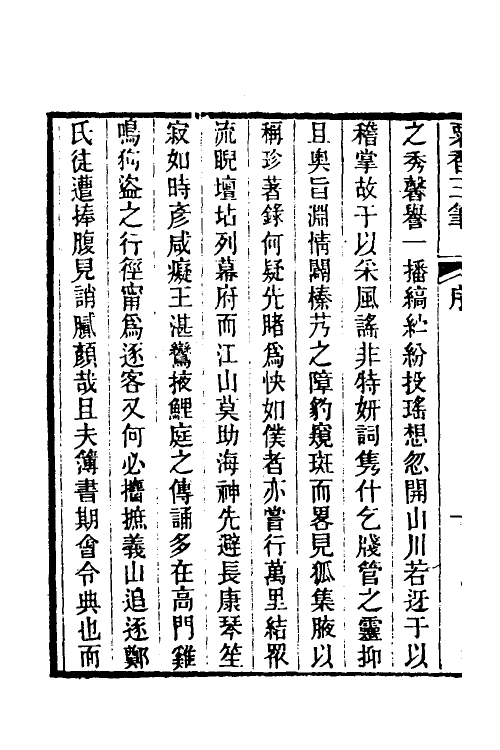 粟香三筆　序　一
之秀馨譽一播縞紵紛投瑤想忽開山川若迓于以
稽掌故于以采風謠非特妍詞雋什乞牋管之靈抑
且奧旨淵情闢榛艿之障豹窺斑而畧見狐集腋以
稱珍著錄何疑先睹爲快如僕者亦嘗行萬里結眾
流睨壇坫列幕府而江山莫助海神先避長康琴笙
寂如時彥咸癡王湛鸞掖鯉庭之傳誦多在高門雞
鳴狗盜之行徑甯爲逐客又何必撏摭義山追逐鄭
氏徒遭捧腹見誚膩顏哉且夫簿書期會令典也而